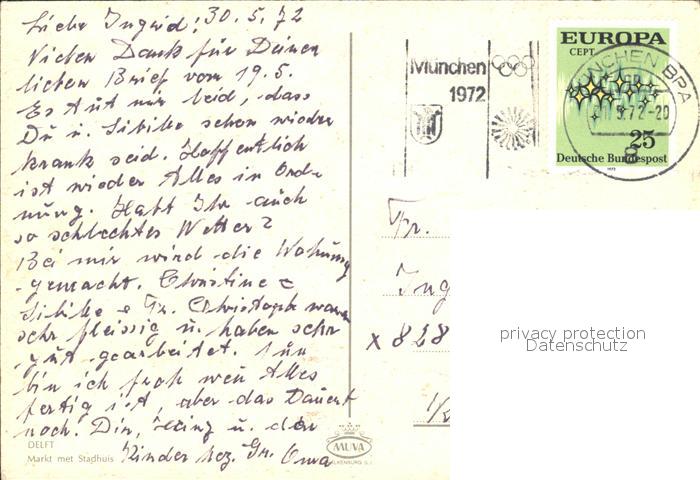 Liebe Ingrid! 30.5.72
Vielen Dank für Deinen
lieben Brief vom 19.5.
Es tut mir leid, dass
Du u. Sibille schon wieder
krank seid. Hoffentlich
ist wieder Alles in Ord-
nung. Habt Ihr auch
so schlechtes Wetter?
Bei mir wird die Wohnung
gemacht. Christine
Sibille Fr. Christoph waren
sehr fleissig u. haben sehr
gut gearbeitet. Nun
bin ich froh wen Alles
fertig ist, aber das Dauert
noch. Dir, Heinz u. den
Kinder herz. Gr. Oma
DELFT
Markt met Stadhuis
MUVA
VALKENBURG
München
1972
MÜNCHEN BPA
5.72-20
EUROPA
CEPT
25
Deutsche Bundespost
1972
Fr.
Ing
x 828
privacy protection
Datenschutz